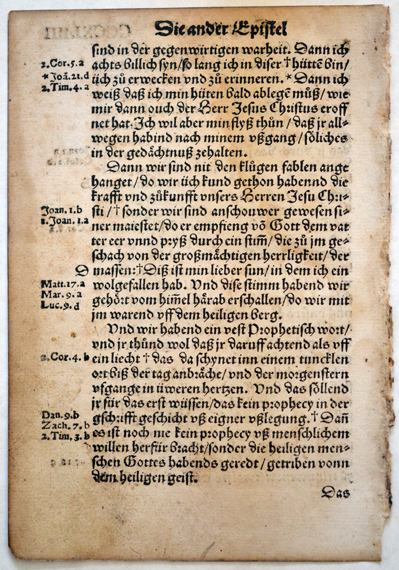 Die ander Epistel
sind in der gegenwirtigen warheit. Dann ich
2. Cor. 5. a achts billich syn/so lang ich in diser †hüttē bin/
* Joā. 21. d üch zů erwecken vnd zů erinneren. * Dann ich
2. Tim. 4. a weiß daß ich min hüten bald ablegē můß/wie
mir dann ouch der Herr Jesus Christus eroff
net hat. Ich wil aber min flyß thůn/daß jr all-
wegen habind nach minem vßgang/söliches
in der gedächtnuß zehalten.
Dann wir sind nit den klůgen fablen ange
hanget/do wir üch kund gethon habennd die
krafft vnd zůkunfft vnsers Herren Jesu Chri-
Joan. 1. b sti/†sonder wir sind anschouwer gewesen si-
1. Joan. 1. a ner maiestet/do er empfieng vō Gott dem vat
ter eer vnnd pryß durch ein stim̄/die zů jm ge-
schach von der großmächtigen herrligkeit/der
D massen:†Diß ist min lieber sun/in dem ich ein
Matt. 17. a wolgefallen hab. Vnd dise stimm habend wir
Mar. 9. a gehört vom him̄el härab erschallen/do wir mit
Luc. 9. d jm warend vff dem heiligen berg.
Vnd wir habend ein vest Prophetisch wort/
vnd jr thůnd wol daß jr daruff achtend als vff
2. Cor. 4. b ein liecht †das da schynet inn einem tuncklen
ort biß der tag anbräche/vnd der morgenstern
vfgange in üweren hertzen. Vnd das söllend
jr für das erst wüssen/das kein prophecy in der
Dan. 9. b gschrifft geschicht vß eigner vßlegung.†Dañ
Zach. 7. b es ist noch nie kein prophecy vß menschlichem
2. Tim. 3. b willen herfür bracht/sonder die heiligen men-
schen Gottes habends geredt/getriben vonn
dem heiligen geist.
Das